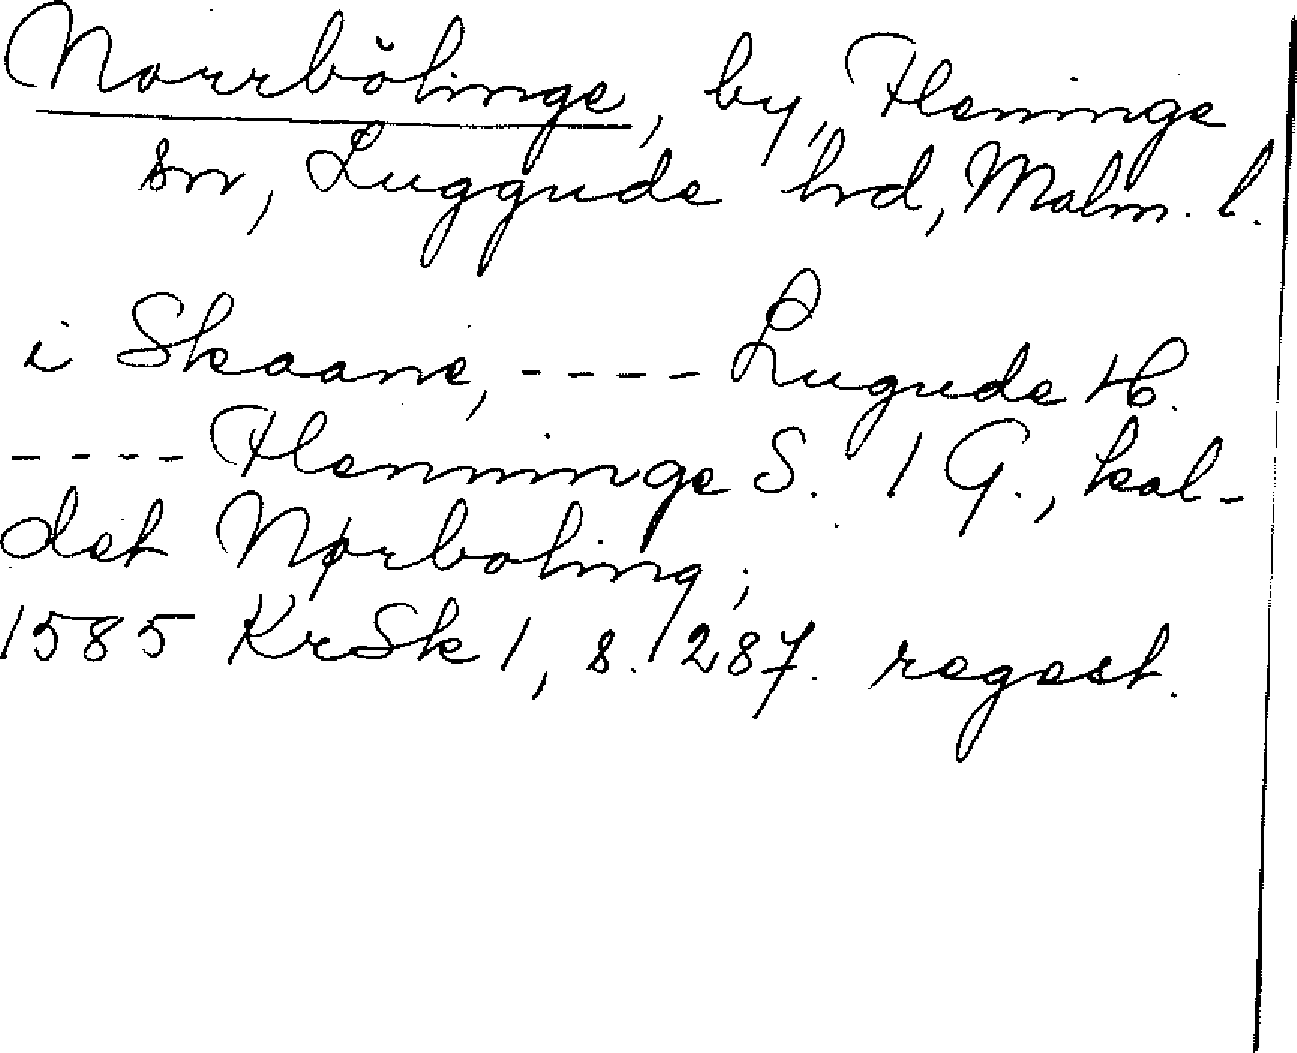 Norrbölinge, by, Fleninge
sn, Luggude hrd, Malm. l.
i Skaane, ---- Lugude H.
---- Flenninge S. 1 G., kal-
det Nørboling;
1585 KrSk 1, s. 287. regest.